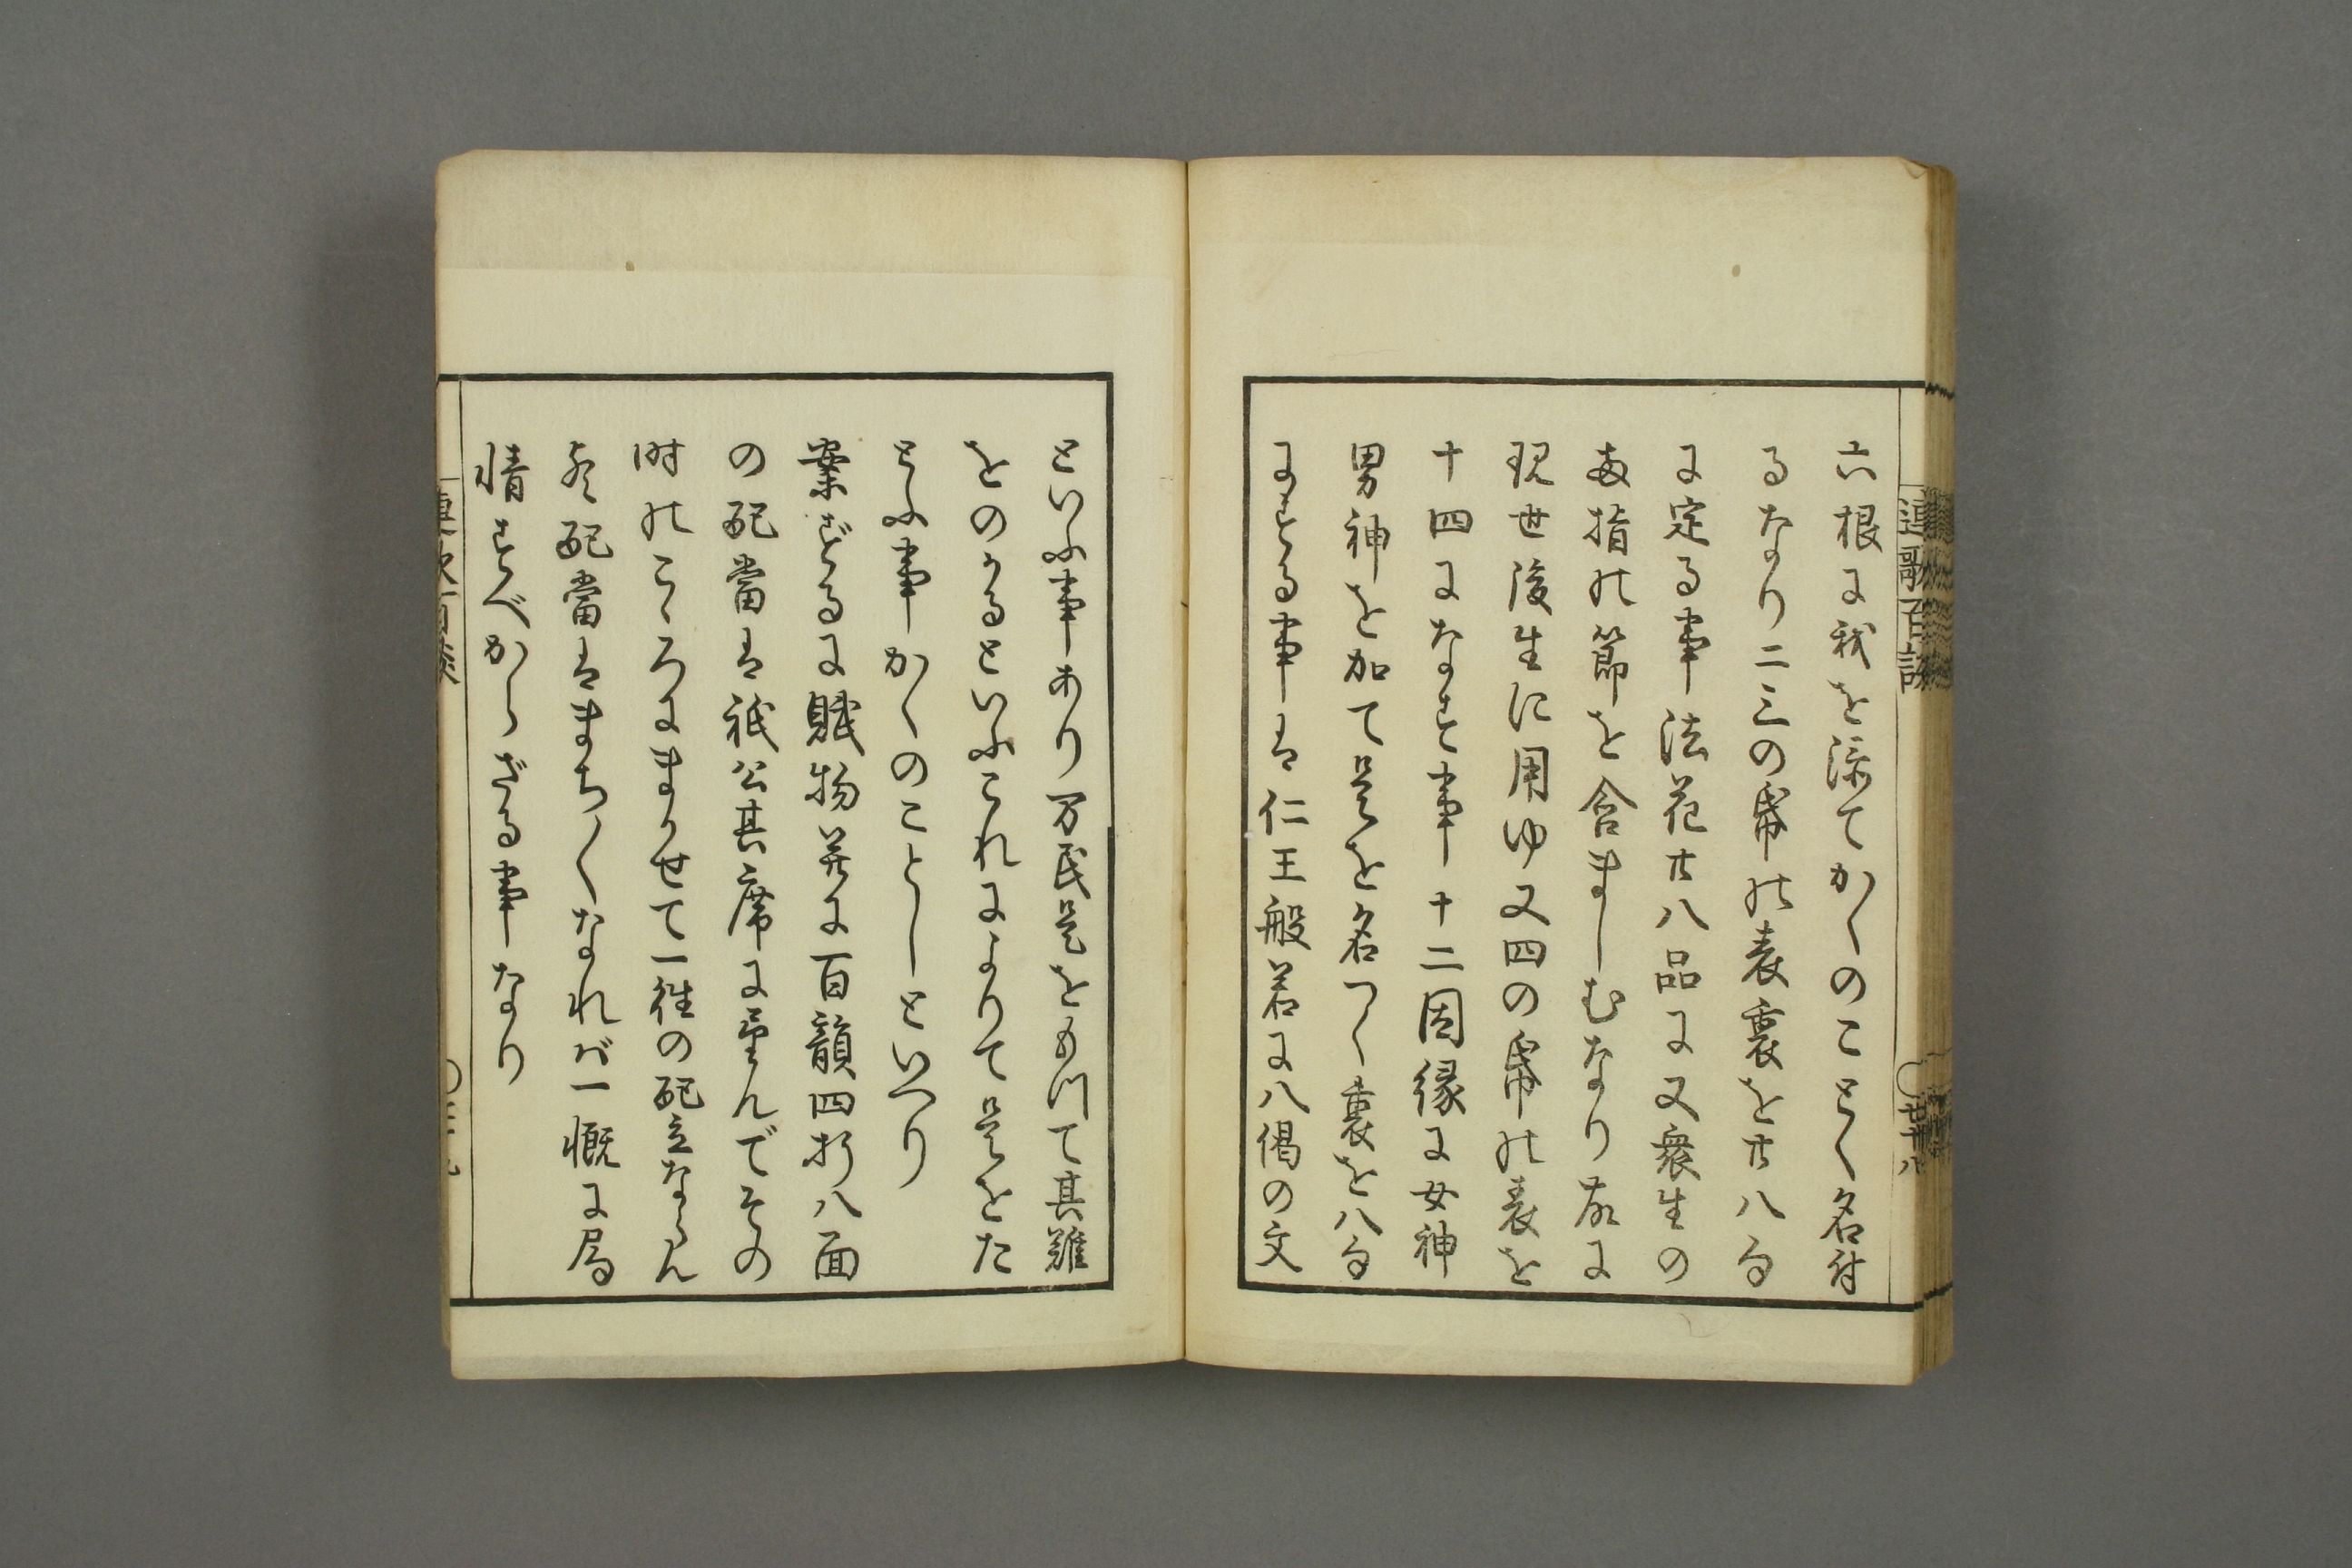 六根に我を添てかくのことく名付
るなり二三の帋の表裏を廿八句
に定る事法花廿八品に又衆生の
両指の節を含ましむなり故に
現世後生に用ゆ又四の帋の表を
十四になす事十二因縁に女神
男神を加て是を名つく裏を八句
にする事は仁王般若に八偈の文
といふ事あり万民是をもつて其難
をのかるといふこれによりて是をた
とふ事かくのことしといへり
案ずるに賦物并に百韻四折八面
の配當は祇公其席に望んでその
時のこゝろにまかせて一往の配立ならん
配當はまち〱なれば一概に局
情すべからざる事なり
連歌百談